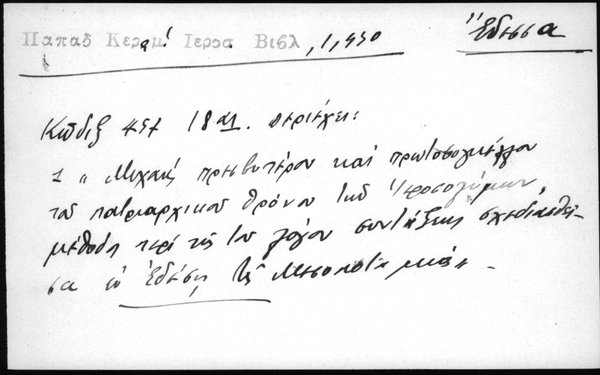 Παπαδ Κεραμ. Ιεροσ Βιβλ , 1, 450
Ἔδεσσα
Κῶδιξ 457 18 αἰ. περιέχει:
1 „ Μιχαὴλ πρεσβυτέρου καὶ πρωτοσυγκέλλου
τοῦ πατριαρχικοῦ θρόνου τῶν Ἱεροσολύμων
μέθοδος περὶ τῆς τοῦ λόγου συντάξεως σχεδιασθεῖ-
σα ἐν Ἐδέσῃ τῆς Μεσοποταμίας „ -